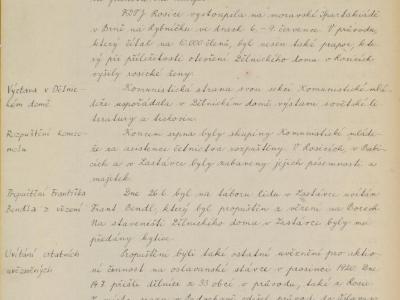 FDTJ Rosice vystoupila na moravské spartakiádě
v Brně na Rybníčku ve dnech 6.-9. července. V průvodu,
který čítal na 6.000 členů, byl nesen také prapor, kte-
rý při příležitosti otevření Dělnického domu v Rosicích
vyšily rosické ženy.
Výstava v Dělnic-
kém domě.
Komunistická strana svou sekcí Komunistické mlá-
deže uspořádala v Dělnickém domě výstavu sovětské li-
teratury a tiskovin.
Rozpuštění komso-
molu
Koncem srpna byly skupiny Komunistické mláde-
že za asistence četnictva rozpuštěny. V Rosicích, v Babi-
cích a v Zastávce byly zabaveny jejich písemnosti a
majetek.
Propuštění Františka
Bendla z vězení
Dne 26.6. byl na táboru lidu v Zastávce uvítán
Frant. Bendl, který byl propuštěn z vězení na Borech.
Na staveništi Dělnického domu v Zastávce byly mu
předány kytice.
Uvítání ostatních
uvězněných
Propuštěni byli také ostatní uvěznění pro aktiv-
ní činnost na oslavanské stávce v prosinci 1920. Dne
14.7. přišli dělníci z 33 obcí v průvodu, také z Rosic